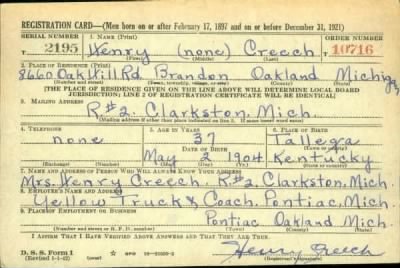 REGISTRATION CARD—(Men born on or after February 17, 1897 and on or before December 31, 1921)
SERIAL NUMBER 1. NAME (Print) ORDER NUMBER
T 2195 Henry (none) Creech T 10716
2. PLACE OF RESIDENCE (Print)
8660 Oak Hill Rd. Brandon Oakland Michigan
[THE PLACE OF RESIDENCE GIVEN ON THE LINE ABOVE WILL DETERMINE LOCAL BOARD
JURISDICTION; LINE 2 OF REGISTRATION CERTIFICATE WILL BE IDENTICAL]
3. MAILING ADDRESS
R#2. Clarkston, Mich.
[Mailing address if other than place indicated on line 2. If same insert word same]
4. TELEPHONE 5. AGE IN YEARS 6. PLACE OF BIRTH
none 37 Tallega
DATE OF BIRTH (Town or county)
May 2 1904 Kentucky
(Exchange) (Number) (Mo.) (Day) (Yr.) (State or country)
7. NAME AND ADDRESS OF PERSON WHO WILL ALWAYS KNOW YOUR ADDRESS
Mrs. Henry Creech. R#2. Clarkston, Mich.
8. EMPLOYER'S NAME AND ADDRESS
Yellow Truck & Coach. Pontiac, Mich.
9. PLACE OF EMPLOYMENT OR BUSINESS
Pontiac Oakland Mich.
(Number and street or R. F. D. number) (Town) (County) (State)
I AFFIRM THAT I HAVE VERIFIED ABOVE ANSWERS AND THAT THEY ARE TRUE.
D. S. S. Form 1
(Revised 1-1-42) GPO Henry Creech